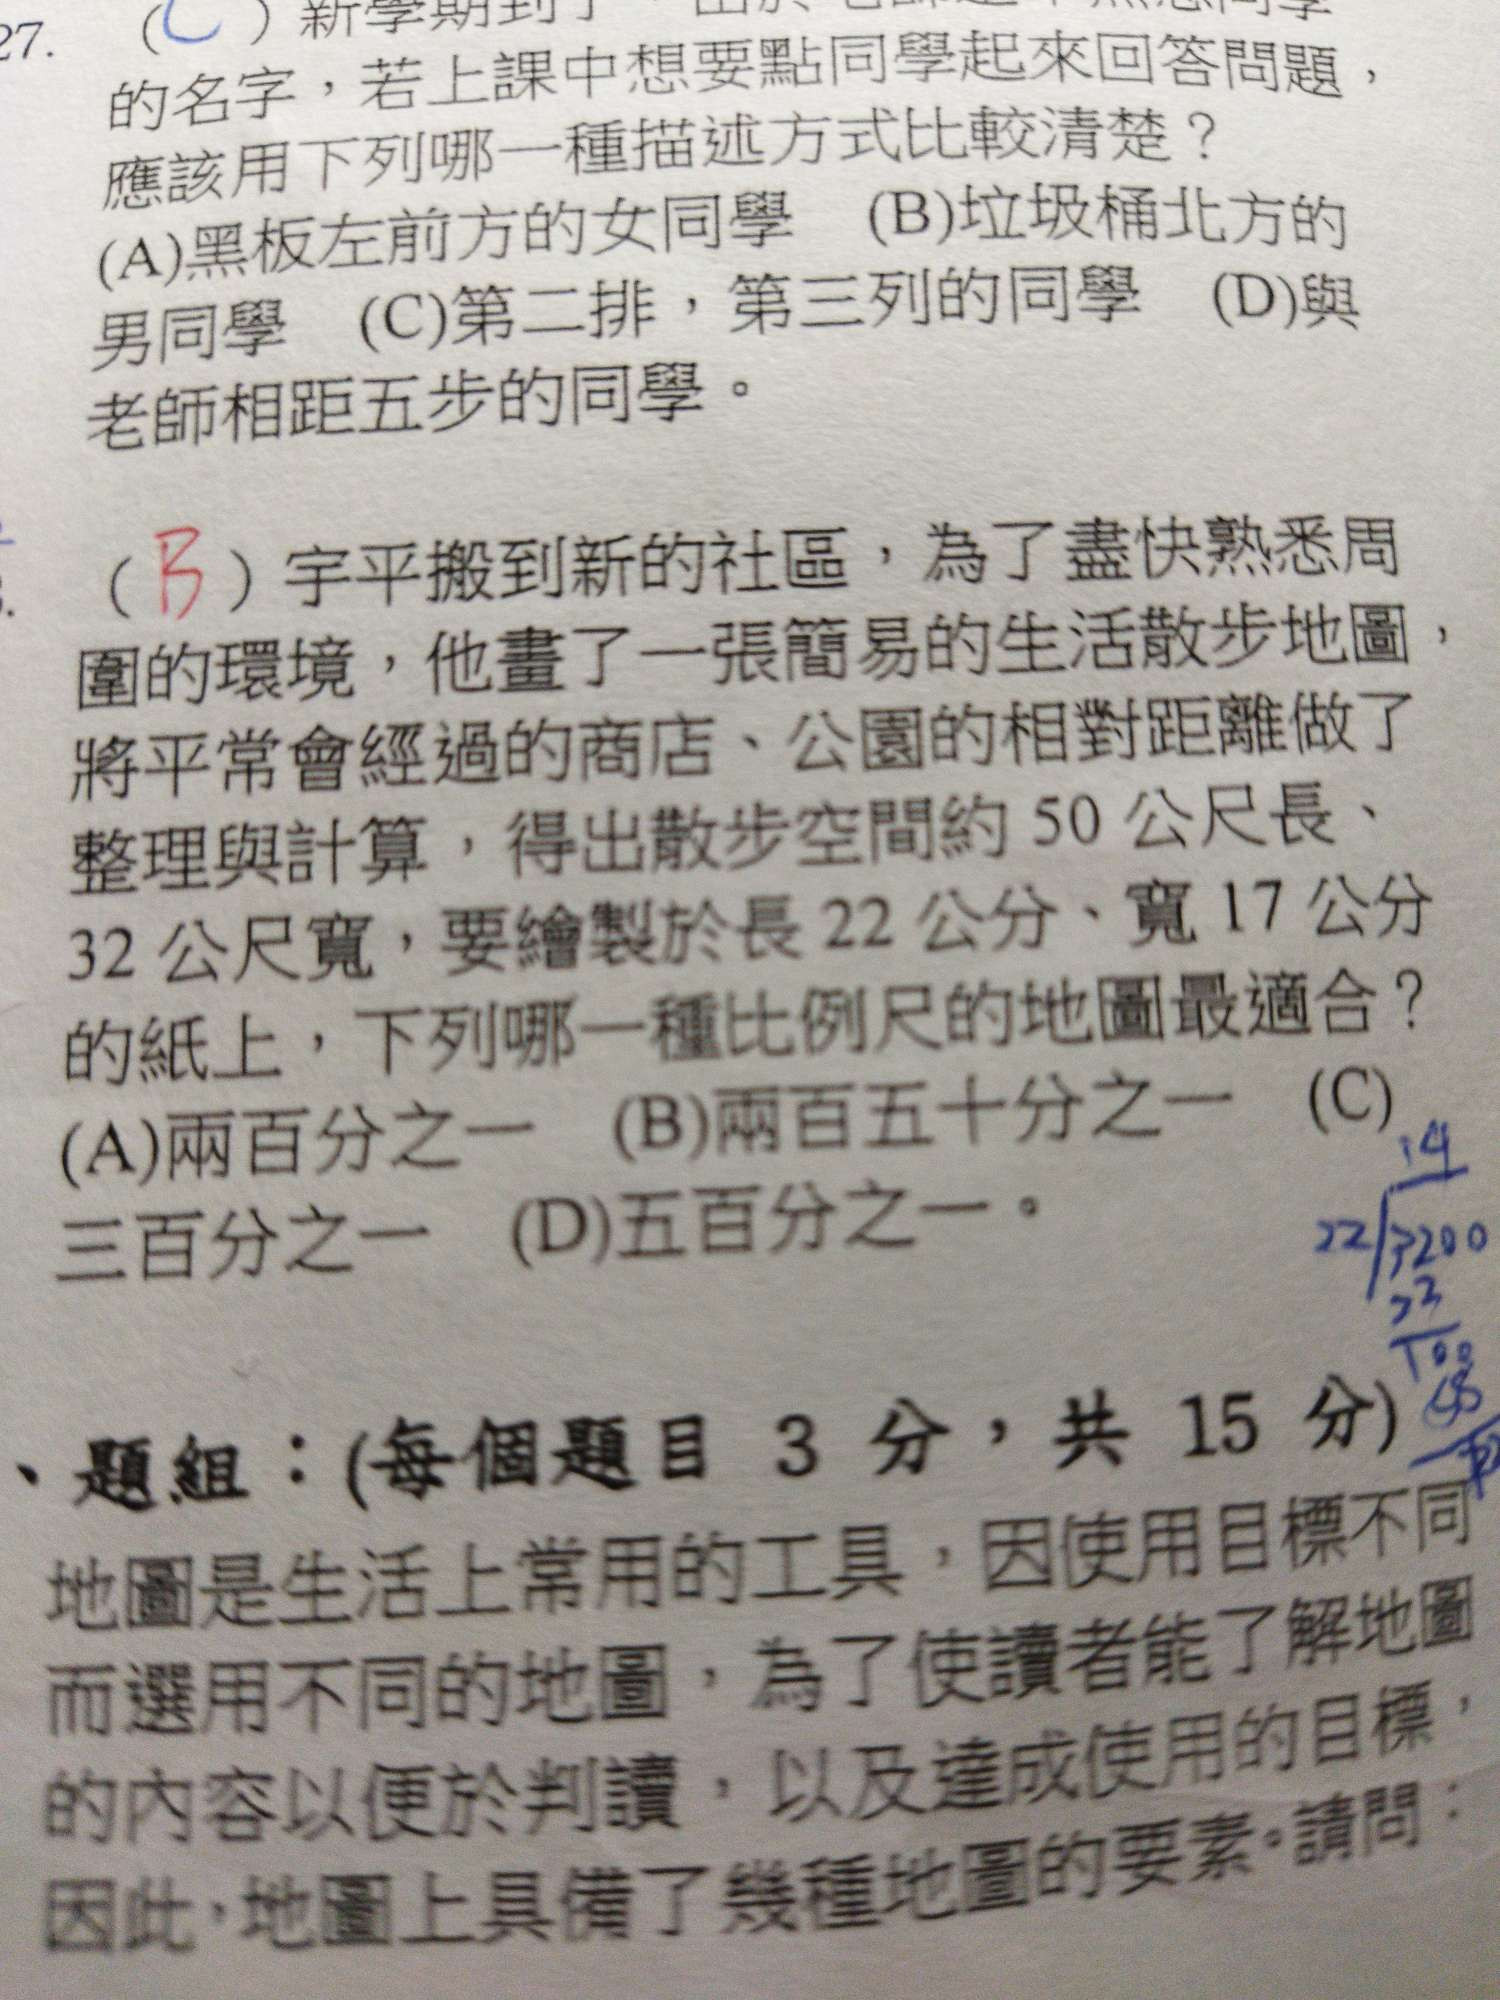 27.
(C)新學期到了，
的名字，若上課中想要點同學起來回答問題，
應該用下列哪一種描述方式比較清楚？
(A)黑板左前方的女同學 (B)垃圾桶北方的
男同學 (C)第二排，第三列的同學 (D)與
老師相距五步的同學。
(B)宇平搬到新的社區，為了盡快熟悉周
圍的環境，他畫了一張簡易的生活散步地圖，
將平常會經過的商店、公園的相對距離做了
整理與計算，得出散步空間約 50 公尺長、
32 公尺寬，要繪製於長 22 公分、寬 17 公分
的紙上，下列哪一種比例尺的地圖最適合？
(A)兩百分之一 (B)兩百五十分之一 (C)
三百分之一 (D)五百分之一。
14
22 3200
22
100
、題組：(每個題目 3 分，共 15 分)
地圖是生活上常用的工具，因使用目標不同
而選用不同的地圖，為了使讀者能了解地圖
的內容以便於判讀，以及達成使用的目標，
因此，地圖上具備了幾種地圖的要素。請問：